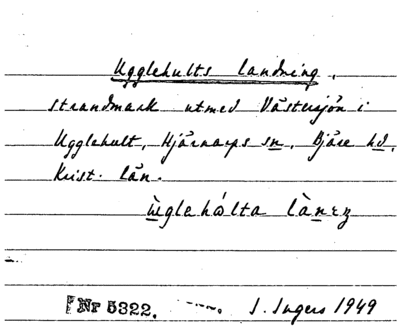 Ugglehults landning,
strandmark utmed Västersjön i
Ugglehult, Hjärnarps sn, Bjäre hd,
Krist. län.
ùglehálta lànɛŋ
Nr 5322. I. Ingers 1949